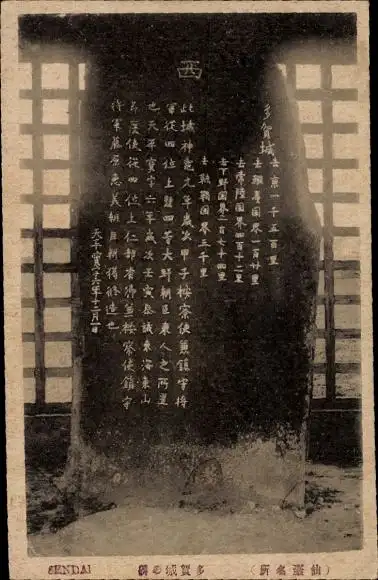 西
多賀城
去京一千五百里
去蝦夷国界一百廿里
去常陸国界四百十二里
去下野国界二百七十四里
去靺鞨国界三千里
此城神亀元年歳次甲子按察使兼鎮守将
軍従四位上勲四等大野朝臣東人之所置
也天平寶字六年歳次壬寅参議東海東山
節度使従四位上仁部省卿兼按察使鎮守
将軍藤原恵美朝臣朝獦修造也
天平寶字六年十二月一日
(仙臺名所) 多賀城の碑 SENDAI